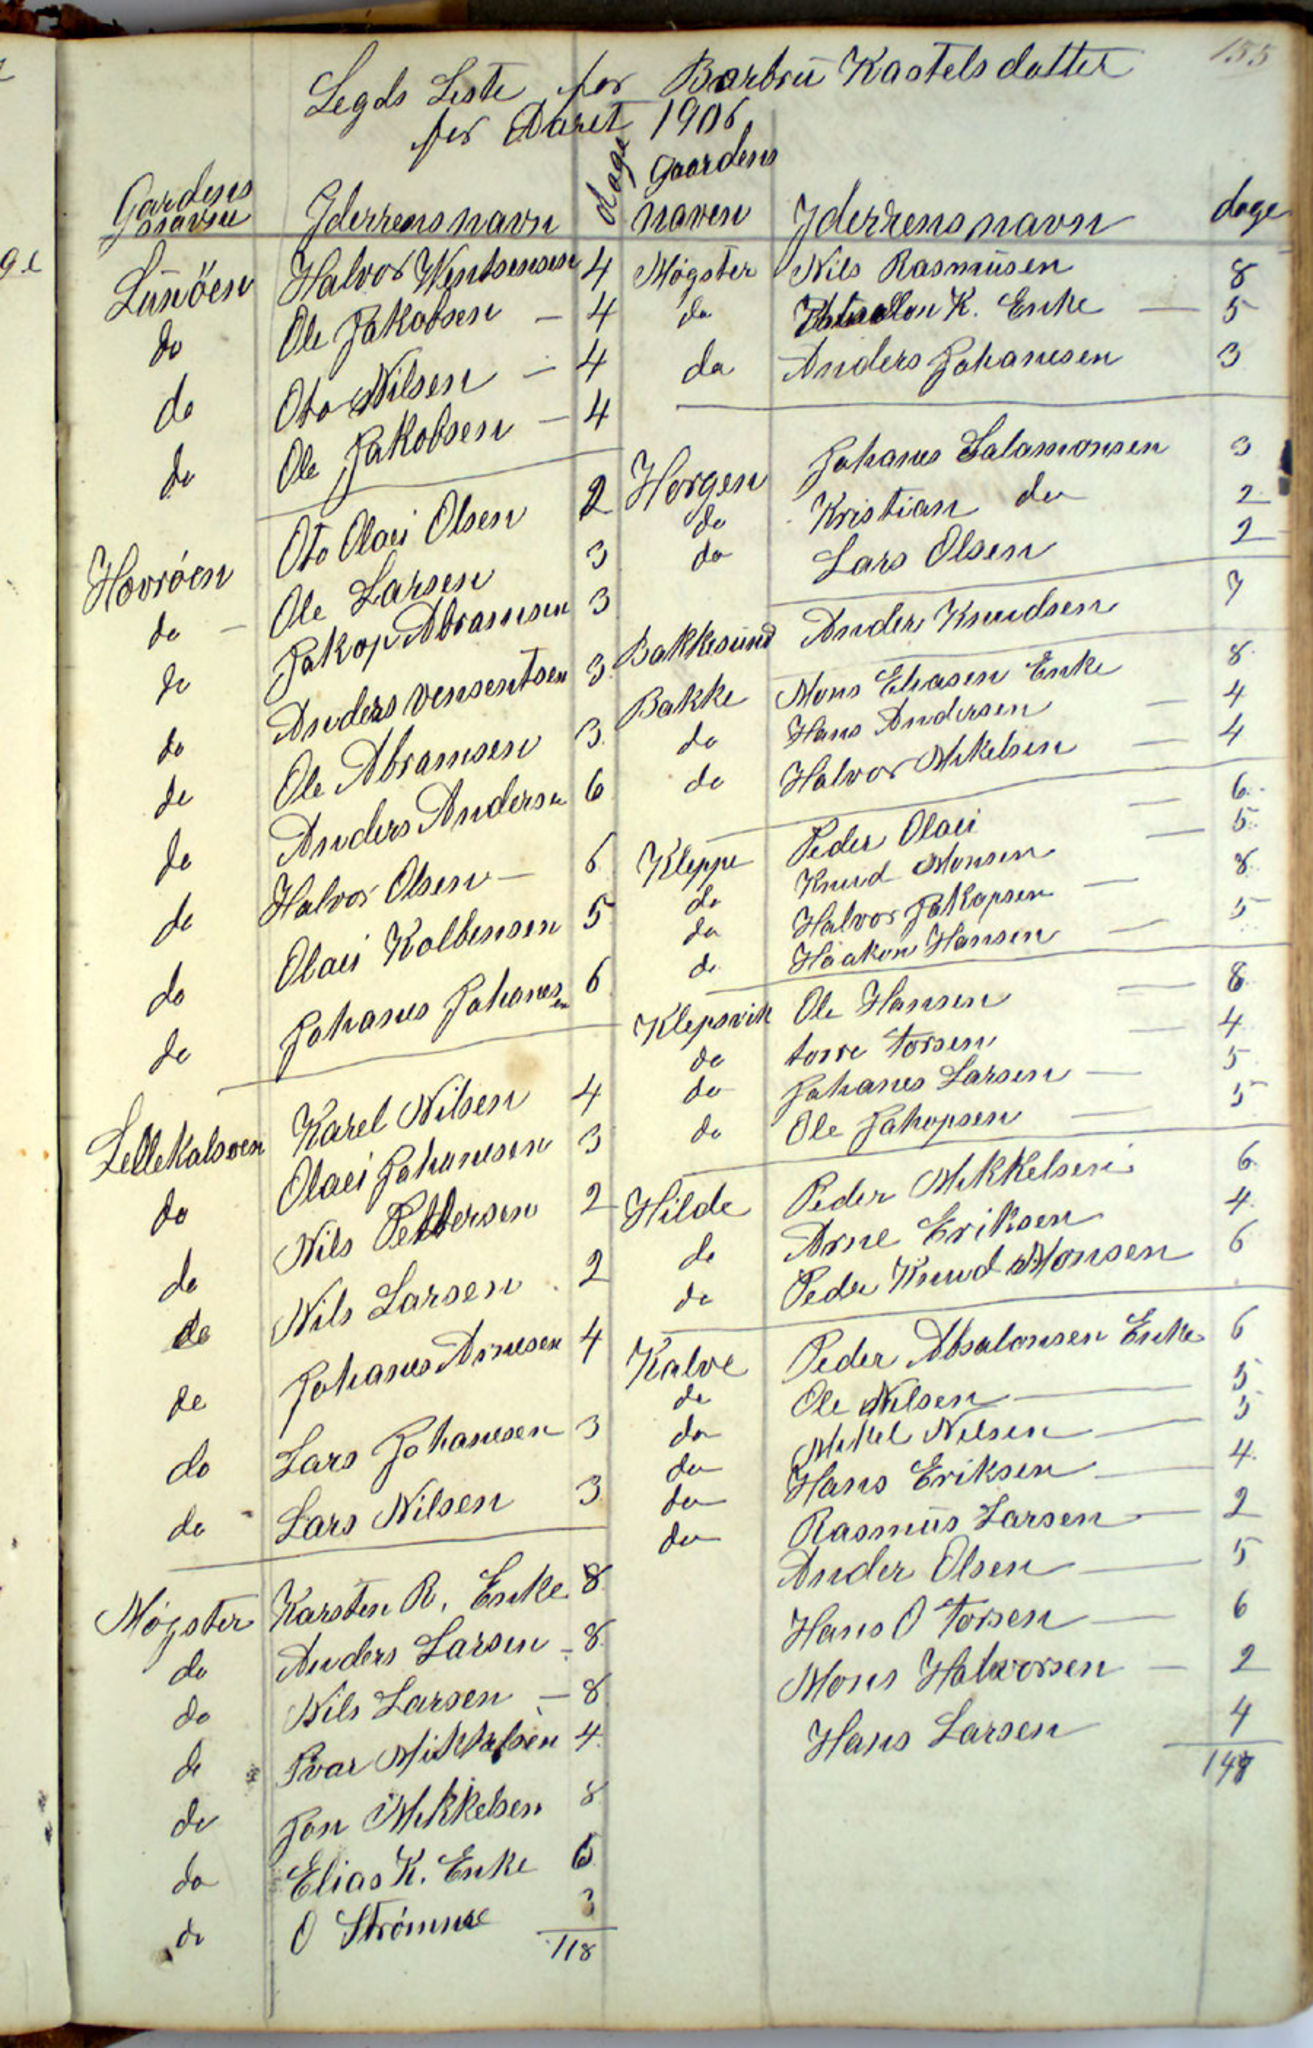 155
Legds Liste for Barbru Kastelsdatter
for Aaret 1906
Gardens navn Yderrens navn dage
Lunöen Halvor Wentsensen 4
do Ole Jakobsen — 4
do Oto Nilsen — 4
do Ole Jakobsen — 4
Hovröen Oto Olai Olsen 2
do — Ole Larsen 3
do Jakop Abramsen 3
do Anders Vensentsen 3
do Ole Abramsen 3
do Anders Andersn 6
do Halvor Olsen — 6
do Olai Kolbensen 5
do Johanes Johanesen 6
Lellekalsoen Karel Nilsen 4
do Olai Johanesen 3
do Nils Pettersen 2
do Nils Larsen 2
do Johanes Arnesen 4
do Lars Johanesen 3
do Lars Nilsen 3
Møgster Karsten R. Enke 8
do Anders Larsen — 8
do Nils Larsen — 8
do Ivar Mikkelsen 4
do Jon Mikkelsen 8
do Elias K. Enke 6
do O Strømme 3
118
Gaardens
naven Yderrens navn dage
Møgster Nils Rasmusen 8
do K. Enke — 5
da Anders Johanesen 3
Horgen Johanes Salamonsen 3
do Kristian do 2
do Lars Olsen 2
Bakkesund Anders Knudsen 7
Bakke Mons Eliasen Enke 8
do Hans Andersen — 4
do Halvor Mikelsen — 4
Kleppe Peder Olai — 6
do Knud Monsen — 5
do Halvor Jakopsen — 8
do Haakon Hansen — 5
Klepsvik Ole Hansen — 8
do torre Torsen — 4
do Johanes Larsen — 5
do Ole Jakopsen — 5
Hilde Peder Mikkelsen 6
do Arne Eriksen 4
do Peder Knud Monsen 6
Kalve Peder Absalonsen Enke 6
do Ole Nilsen — 5
do Mikel Nilsen — 5
do Hans Eriksen — 4
do Rasmus Larsen — 2
do Ander Olsen — 5
Hans O Torsen — 6
Mons Halvorsen — 2
Hans Larsen 4
148
ge